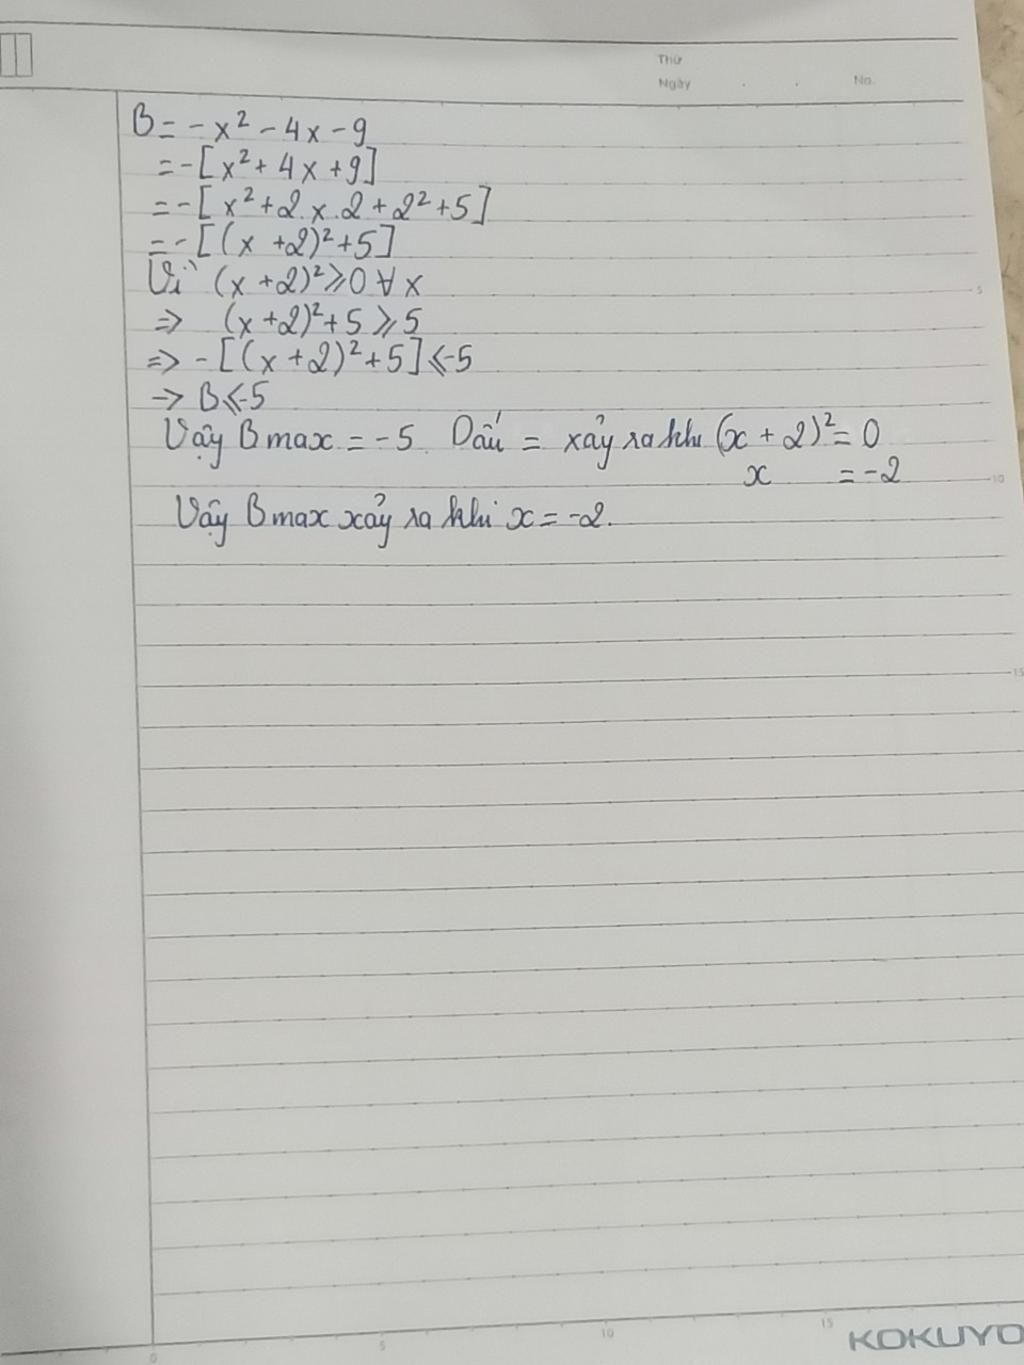 Thứ
Ngày . . No.
B = - x² - 4x - 9
= - [x² + 4x + 9]
= - [x² + 2.x.2 + 2² + 5]
= - [(x + 2)² + 5]
Vì (x + 2)² ⩾ 0 ∀ x
=> (x + 2)² + 5 ⩾ 5
=> - [(x + 2)² + 5] ⩽ -5
-> B ⩽ -5
Vậy B max = - 5 Dấu = xảy ra khi (x + 2)² = 0
x = - 2
Vậy B max xảy ra khi x = -2.
5
10
15
0 5 10 15
KOKUYO